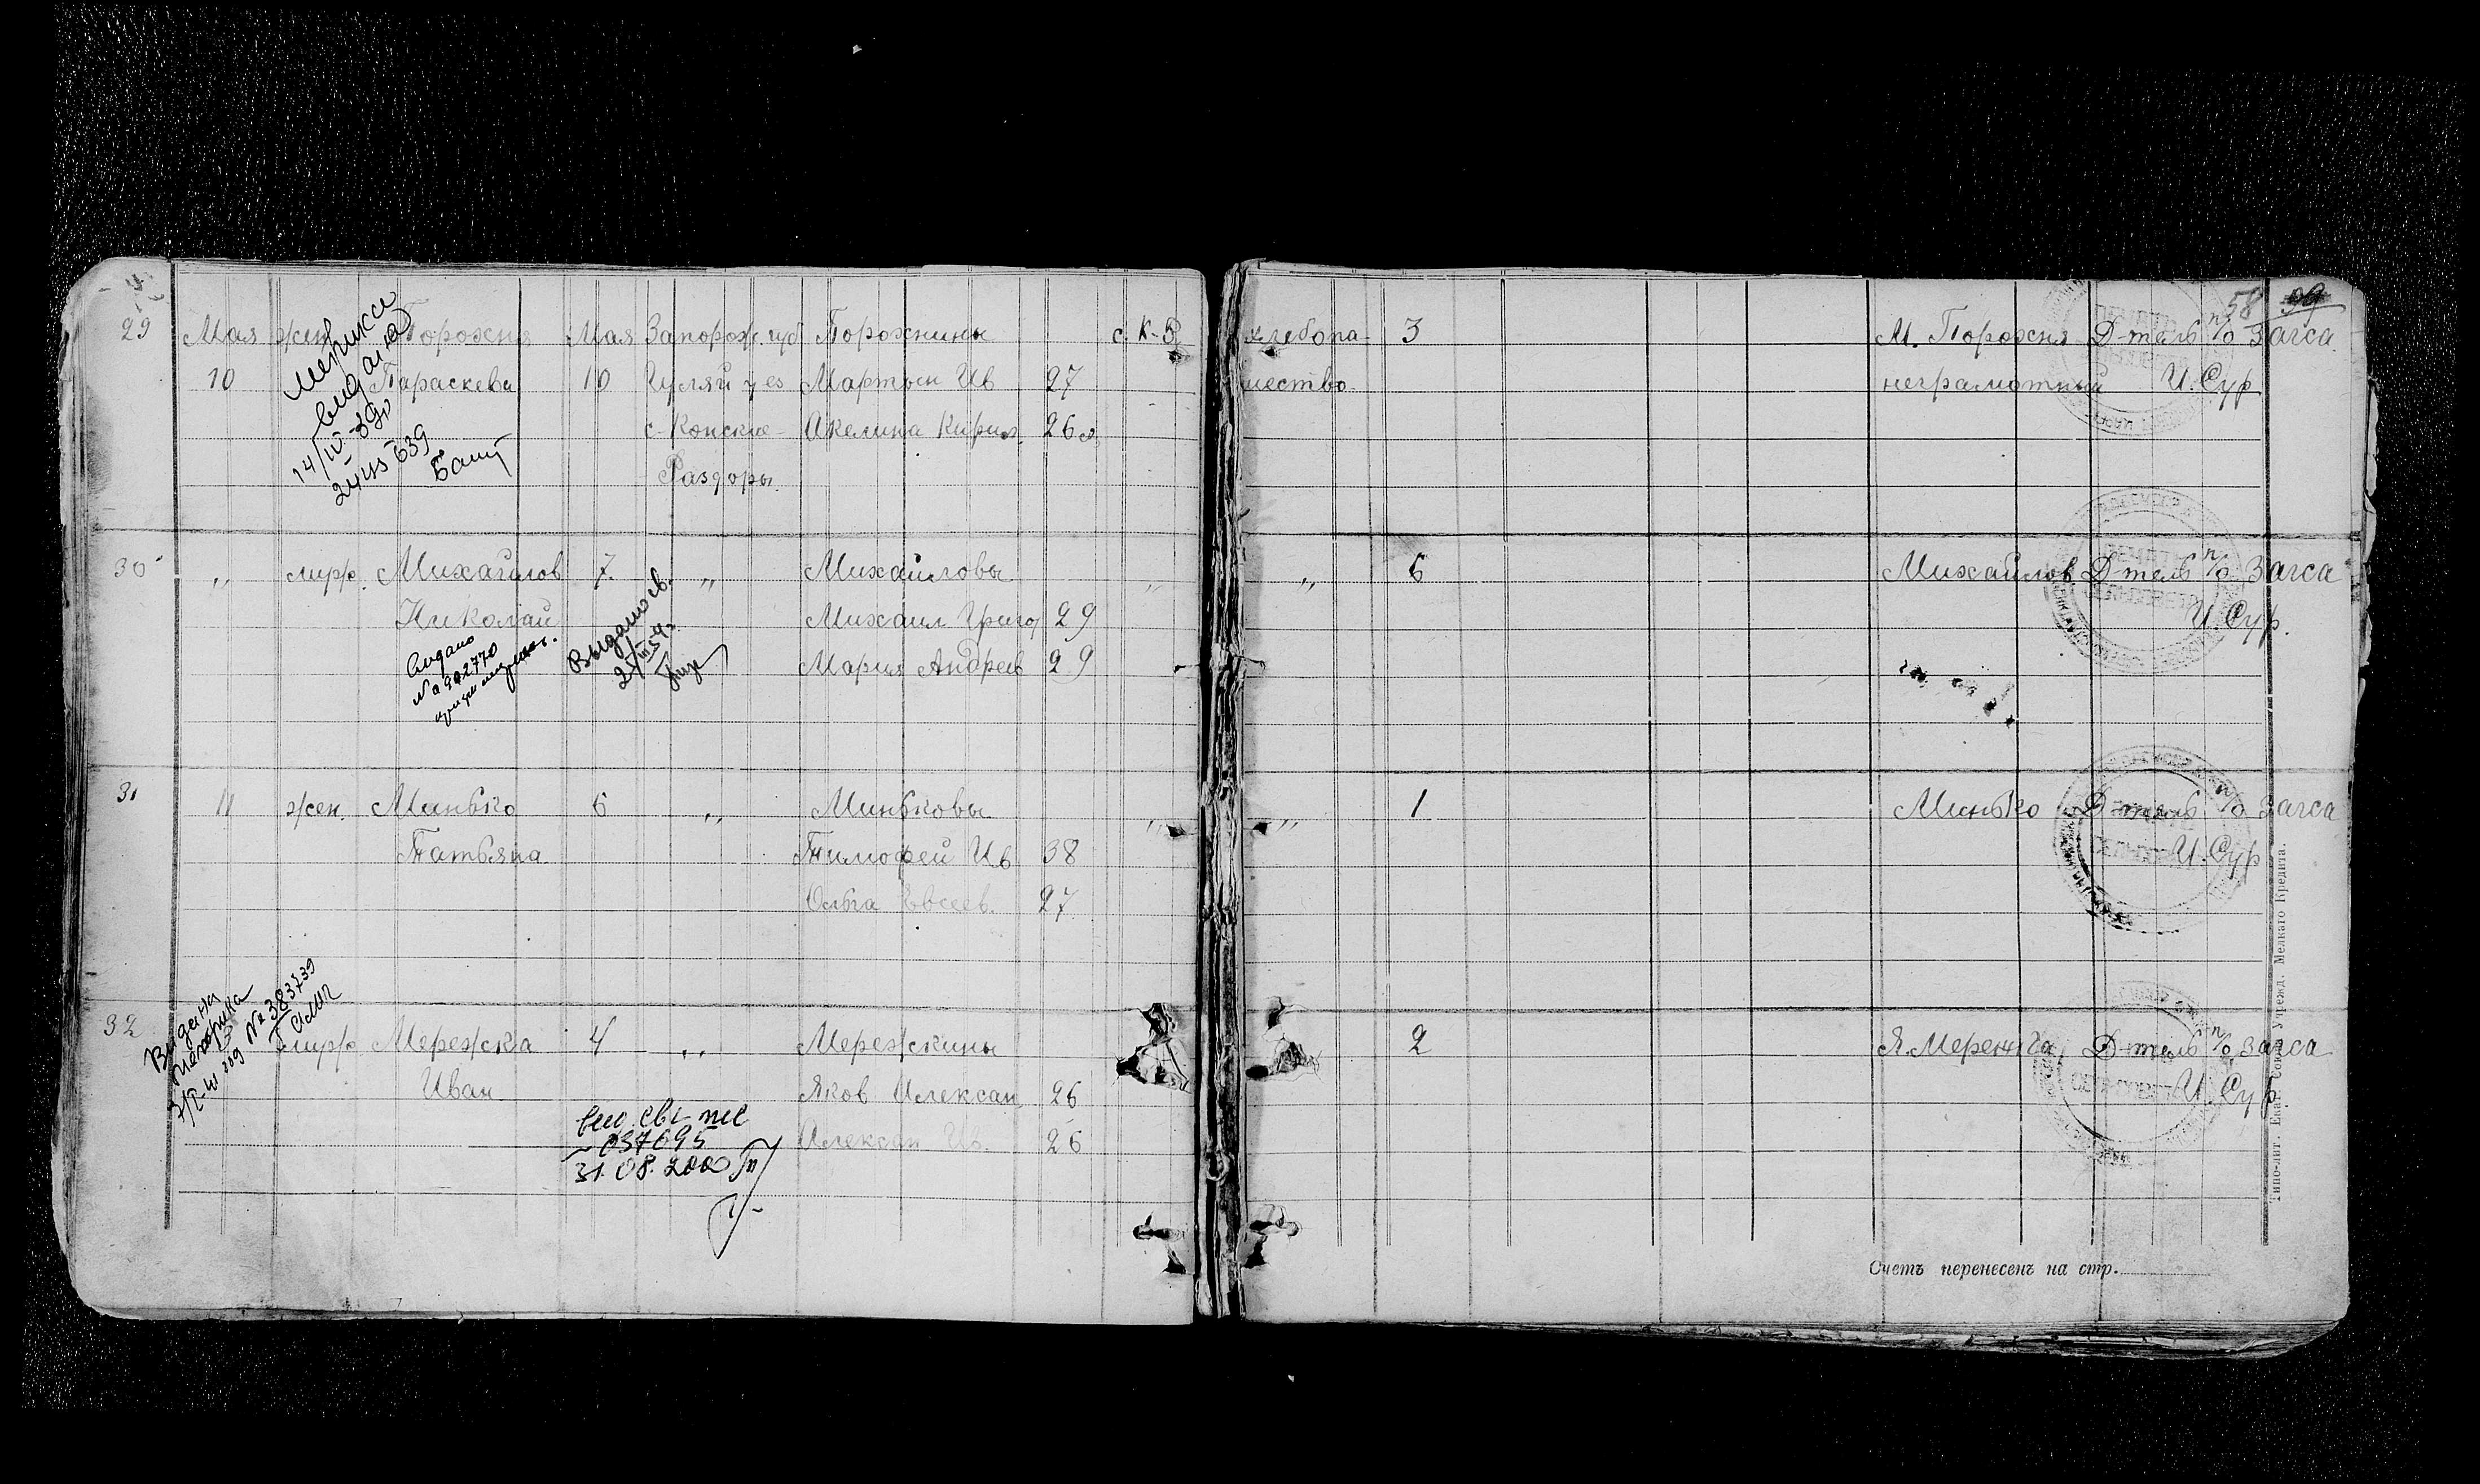 58 99
29 Мая жен. Порожня Мая Запорож. губ. Порожнины с. К-Р. хлебопа- 3 М. Порожня Д-тель п/о Загса
10 Параскева 10 Гуляй у ез Мартын Ив 27 шество. неграмотный И. Сур
с. Конские- Акелина Кирил. 26
Раздоры.
метрика
видана
14/IV-39
Баш
30 〃 муж. Михайлов 7. 〃 Михайловы 〃 〃 6 Михайлов Д-тель п/о Загса
Николай Михаил Григо 29 И. Сур.
Мария Андреев 29
Видано
№ 902770
Выдано св.
31 11 жен. Минько 6 〃 Миньковы 〃 〃 1 Минько Д-тель п/о Загса
Татьяна Тимофей Ив 38 И. Сур
Ольга Евсеев. 27
32 мужс Мережка 4 〃 Мережкины 2 Я. Мережка Д-тель п/о Загса
Иван Яков Алексан 26 И. Сур
Алексан Ив. 26
Видана
Метрика
№ 383739
037695
31.08.2000
СЕЛЬСОВЕТ
Типо-лит. Екат. Союза Учрежд. Мелкаго Кредита.
Счетъ перенесенъ на стр.